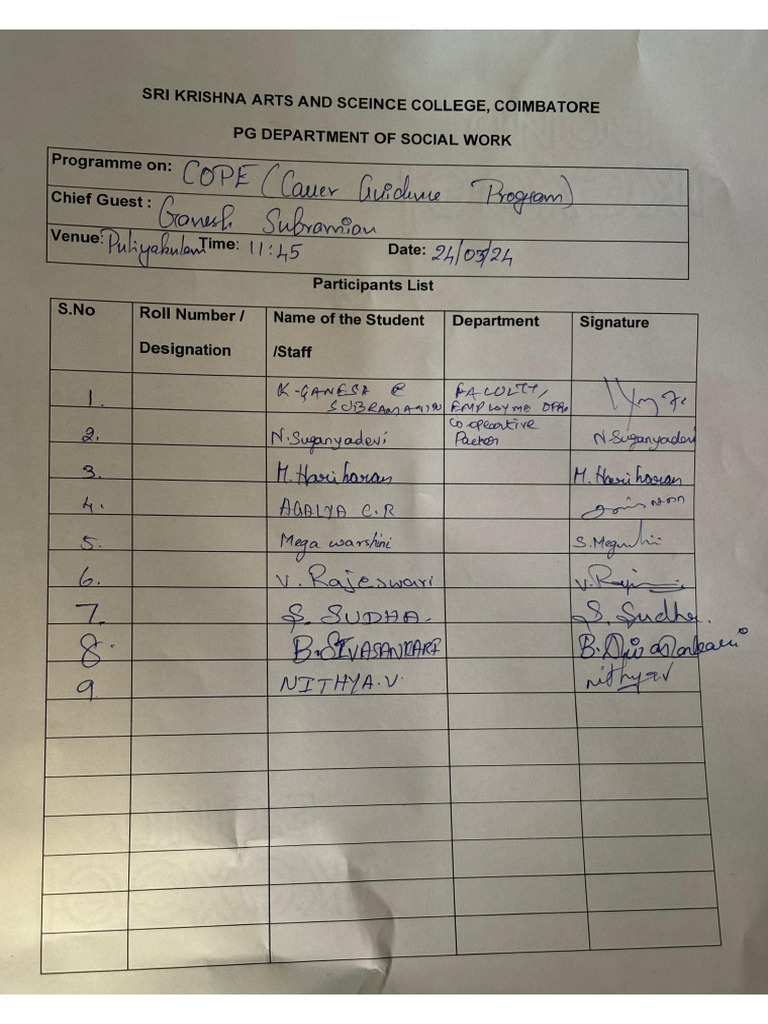 SRI KRISHNA ARTS AND SCEINCE COLLEGE, COIMBATORE
PG DEPARTMENT OF SOCIAL WORK
Programme on: COPE (Career Guidance Program)
Chief Guest : Ganesh Subramian
Venue: Puliyakulam Time: 11:45 Date: 24/03/24
Participants List
S.No Roll Number / Designation Name of the Student /Staff Department Signature
1. K-GANESH SUBRAMANIAN FACULTY, EMPLOYME
2. N.Suganyadevi Co-operative N.Suganyadevi
3. M.Hariharan M.Hariharan
4. AGALYA C.R
5. Mega warshini
6. V. Rajeswari
7. S. SUDHA. S. Sudha.
8. B.SIVASANKARI B.Sivasankari
9. NITHYA.V. Nithya.V